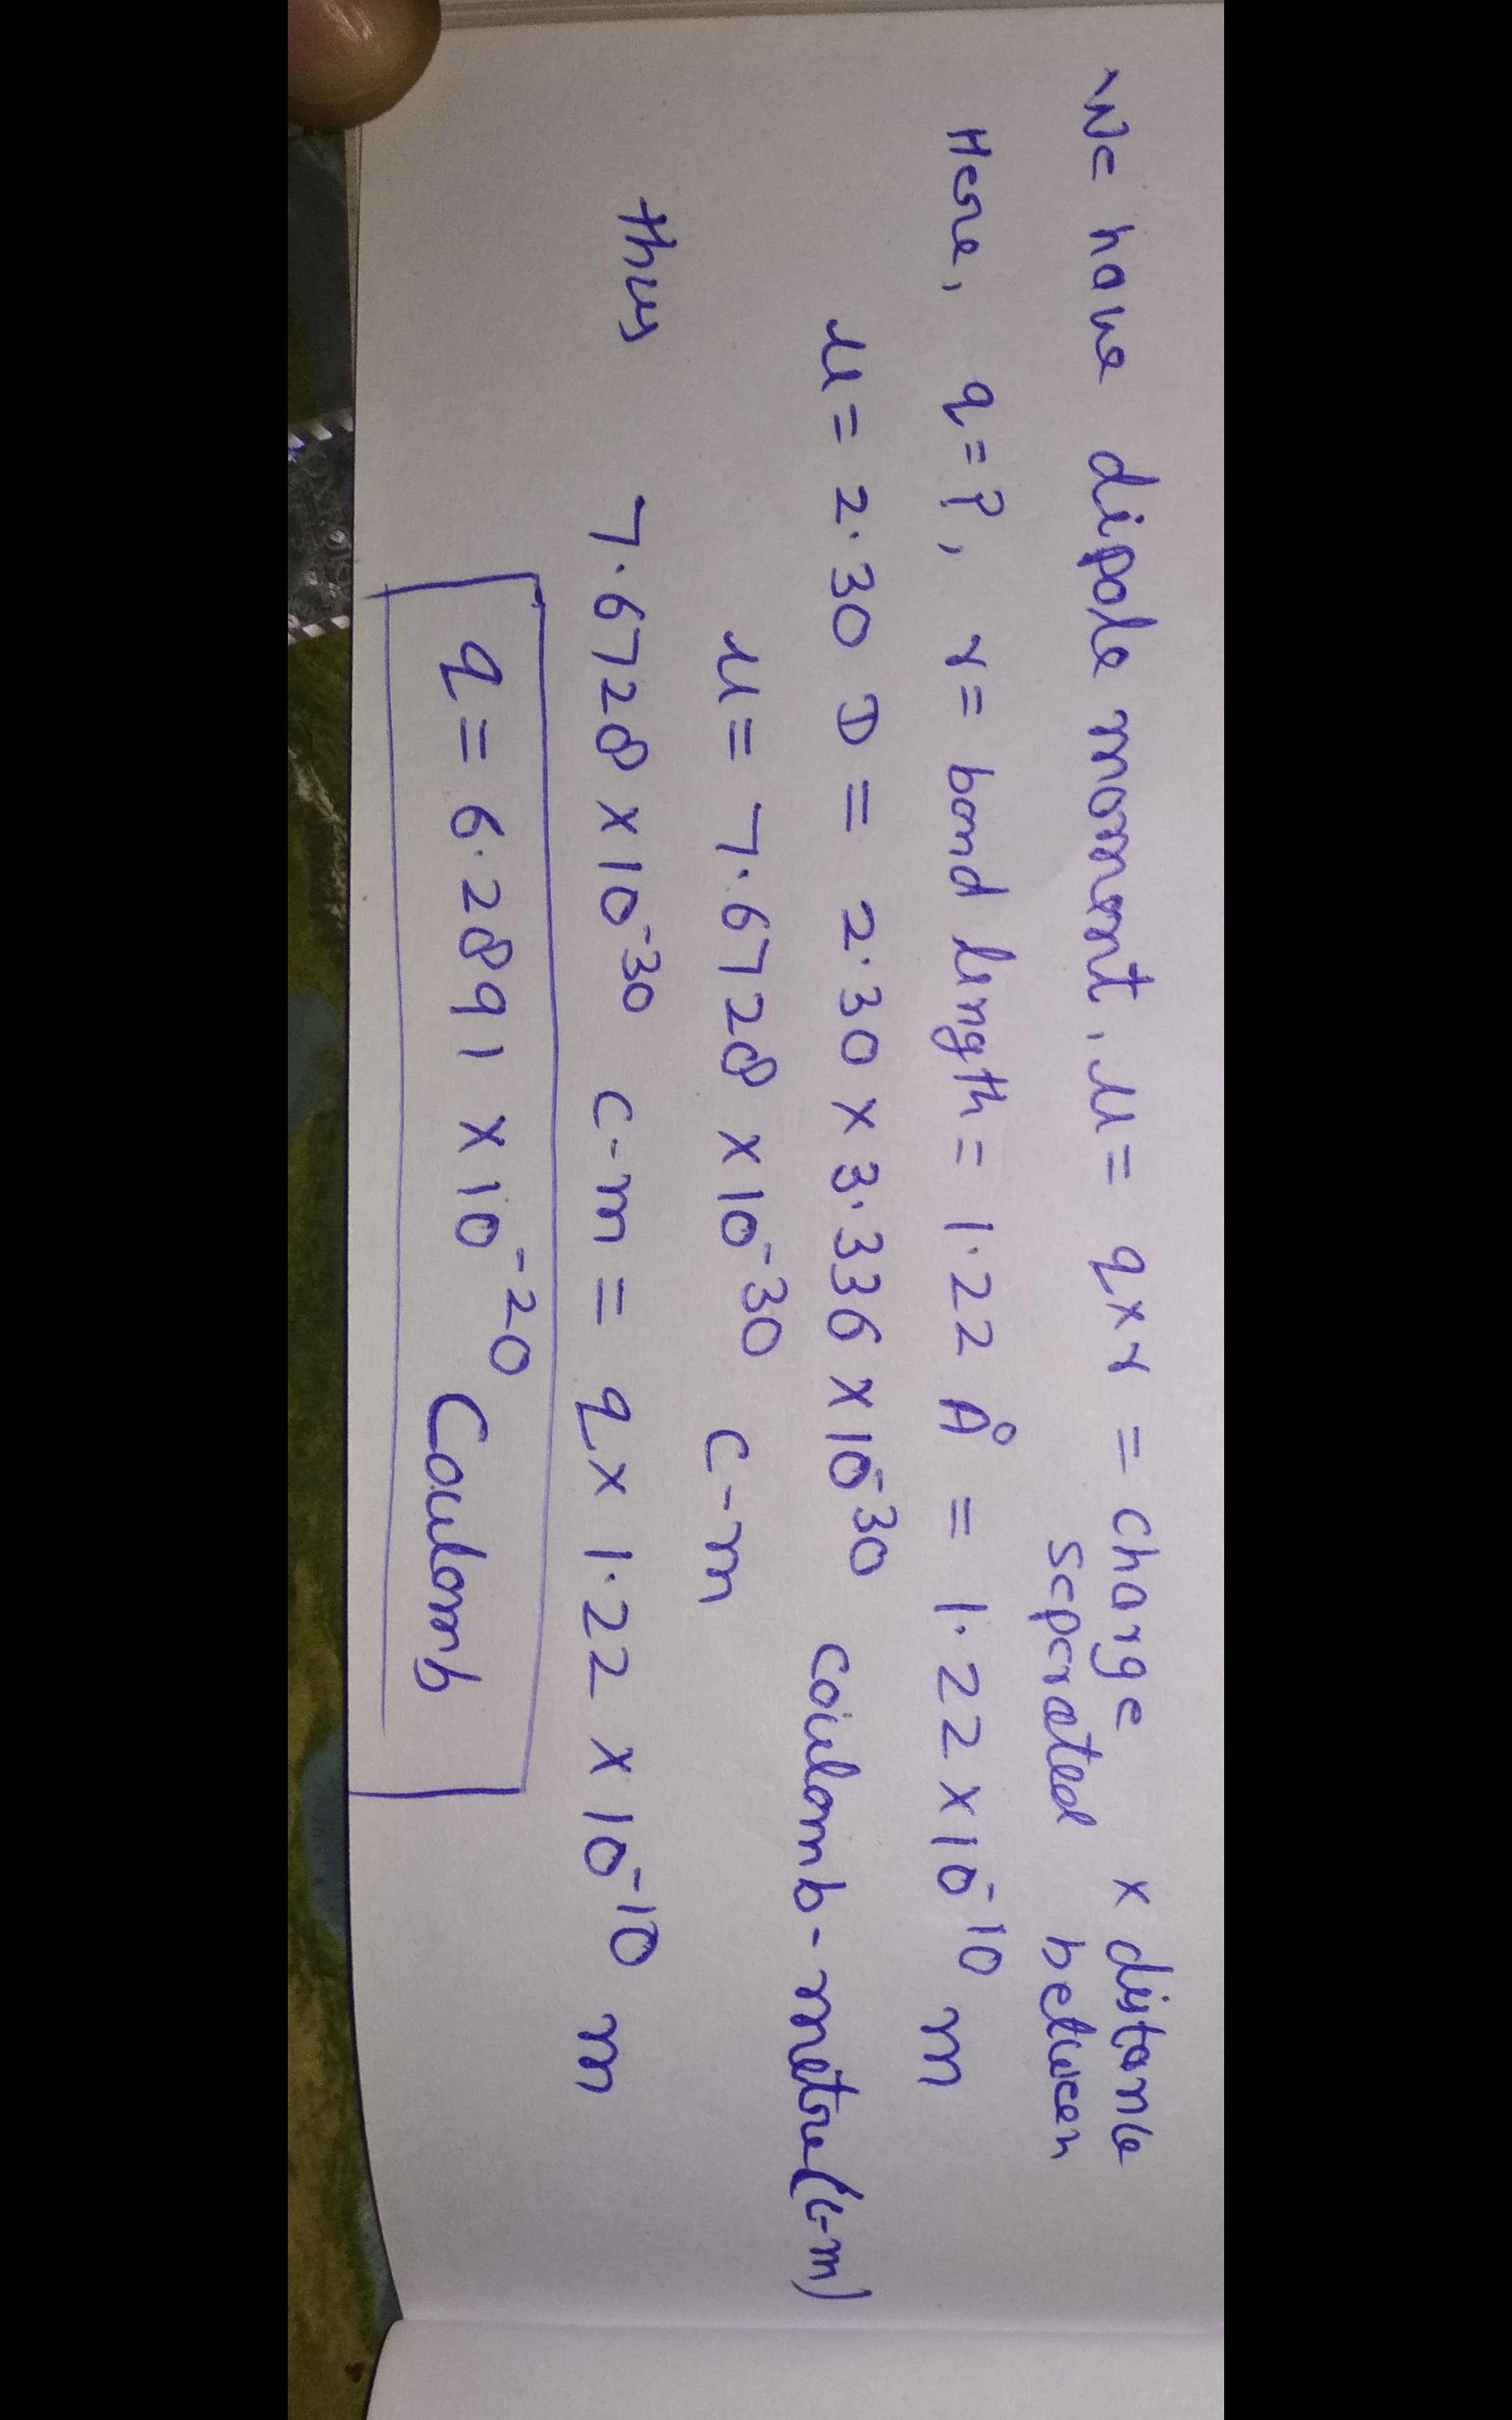 We have dipole moment, μ = q×r = charge × distance
seperated between
Here, q=?, r= bond length = 1.22 Å = 1.22×10⁻¹⁰ m
μ = 2.30 D = 2.30 × 3.336 × 10⁻³⁰ Coulomb-metre (C-m)
μ = 7.6728 × 10⁻³⁰ C-m
thus 7.6728 × 10⁻³⁰ C-m = q× 1.22 × 10⁻¹⁰ m
q = 6.2891 × 10⁻²⁰ Coulomb